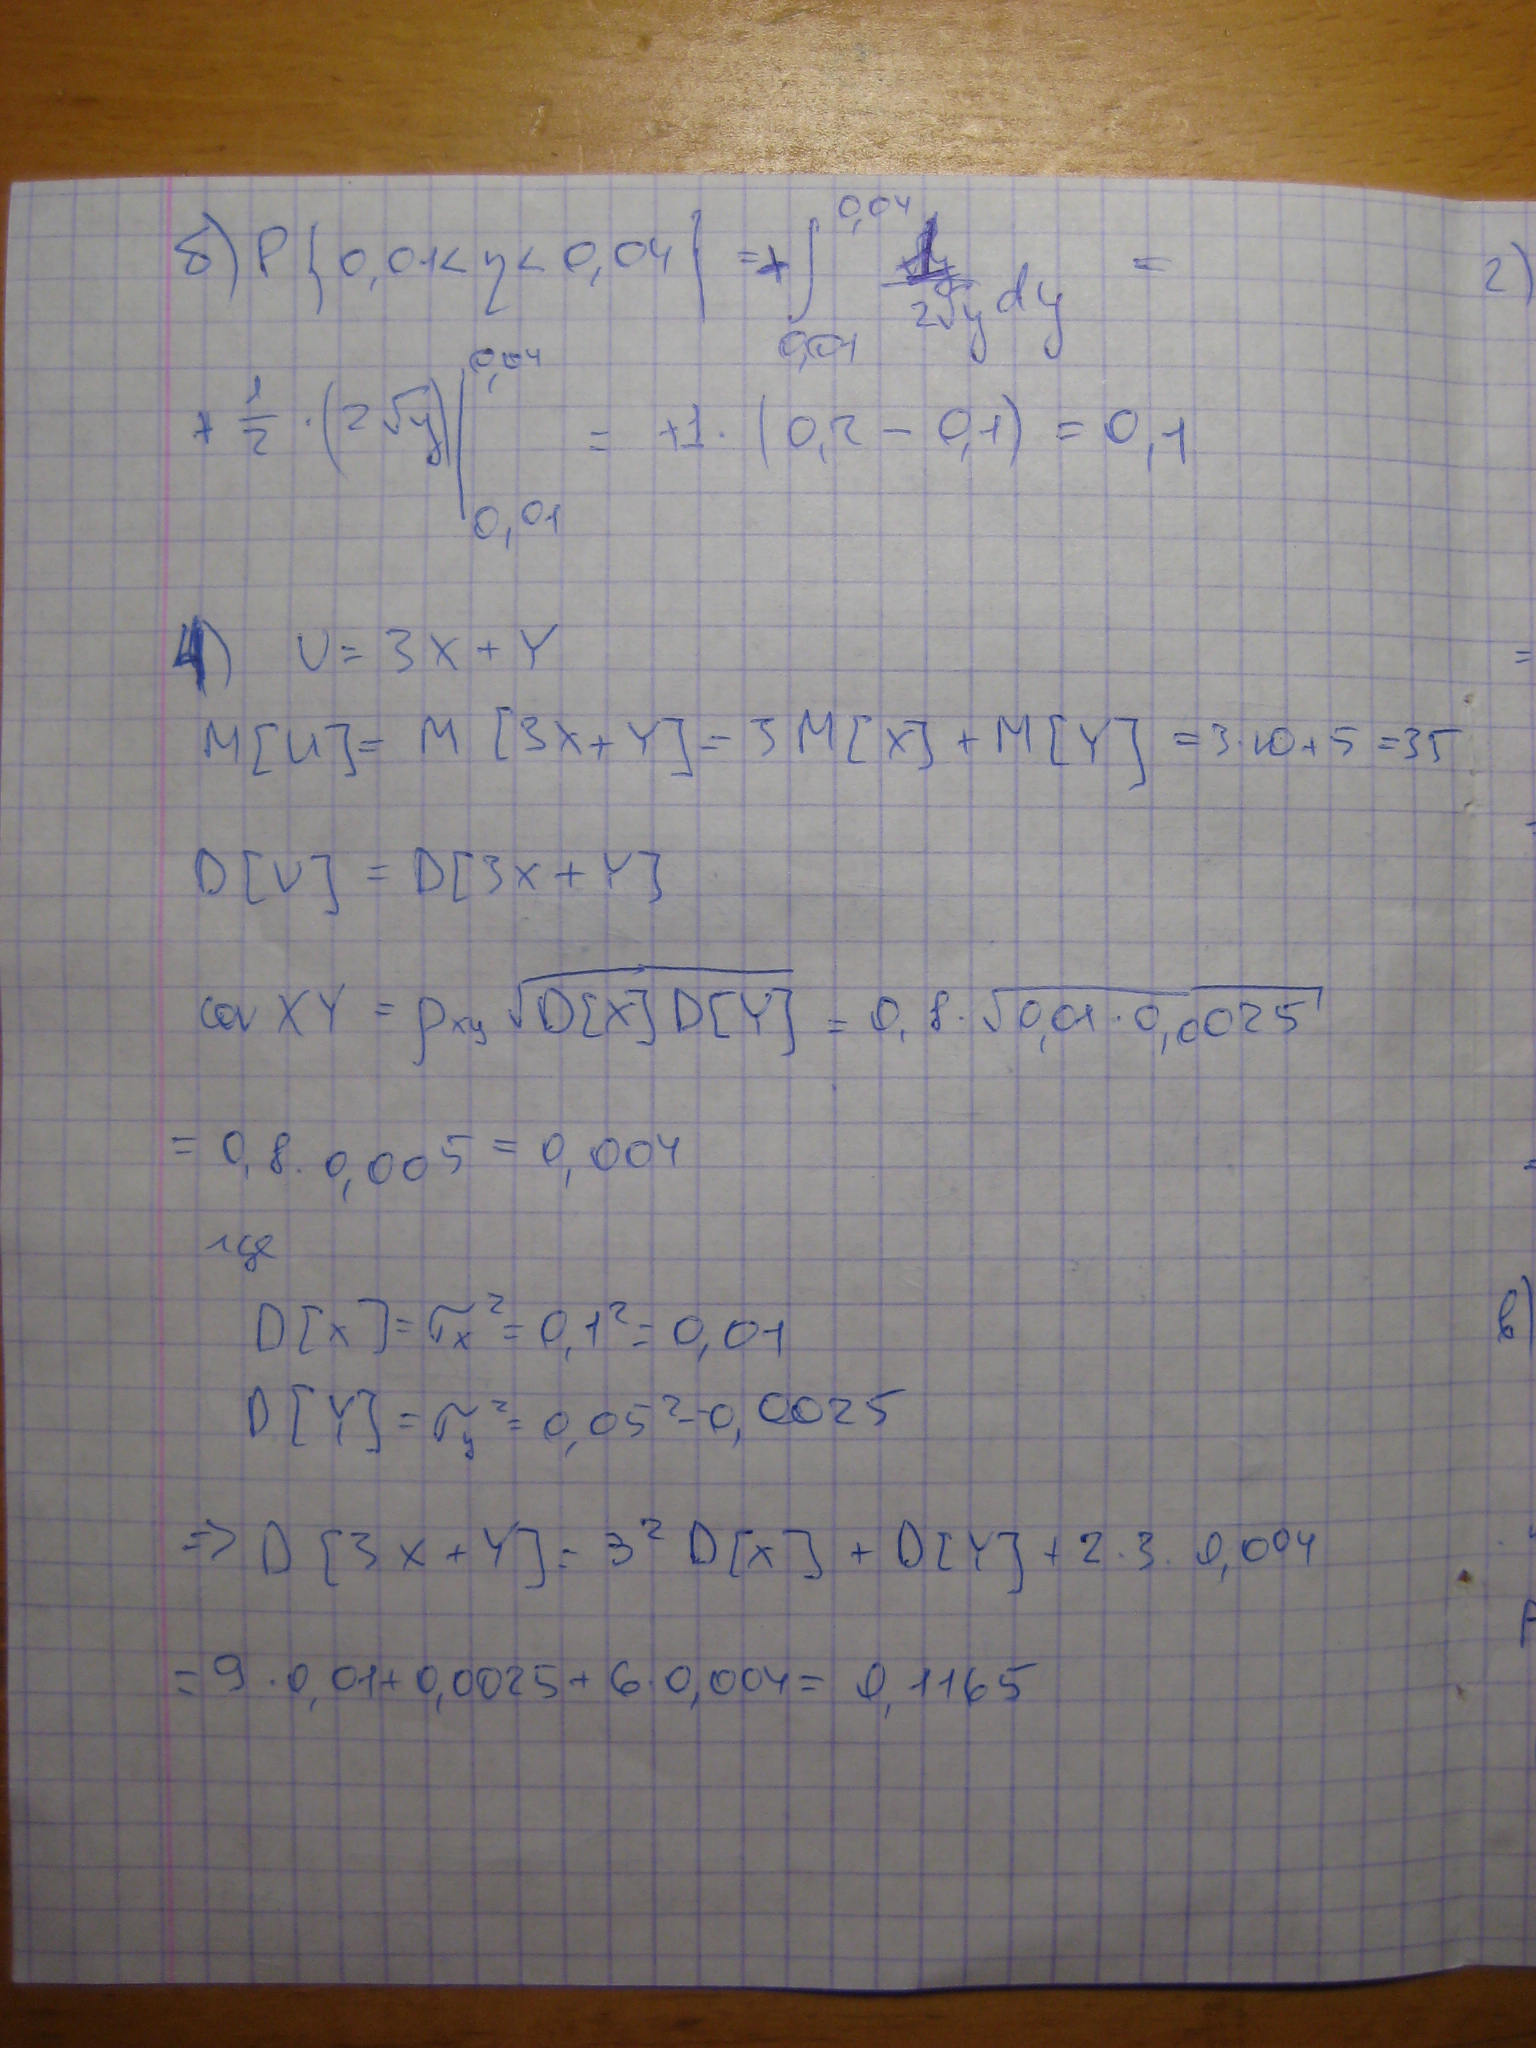 б) P{0,01< η < 0,04} = + ∫_{0,01}^{0,04} 1/(2√y) dy =
+ 1/2 · (2√y) |_{0,01}^{0,04} = +1 · (0,2 - 0,1) = 0,1
4) U = 3X + Y
M[U] = M [3X + Y] = 3 M[X] + M[Y] = 3·10 + 5 = 35
D[U] = D[3X + Y]
cov XY = ρxy √D[X] D[Y] = 0,8 · √0,01 · 0,0025
= 0,8 · 0,005 = 0,004
где
D[X] = σx² = 0,1² = 0,01
D[Y] = σy² = 0,05² = 0,0025
=> D [3X + Y] = 3² D[X] + D[Y] + 2 · 3 · 0,004
= 9 · 0,01 + 0,0025 + 6 · 0,004 = 0,1165
г)
=
в)